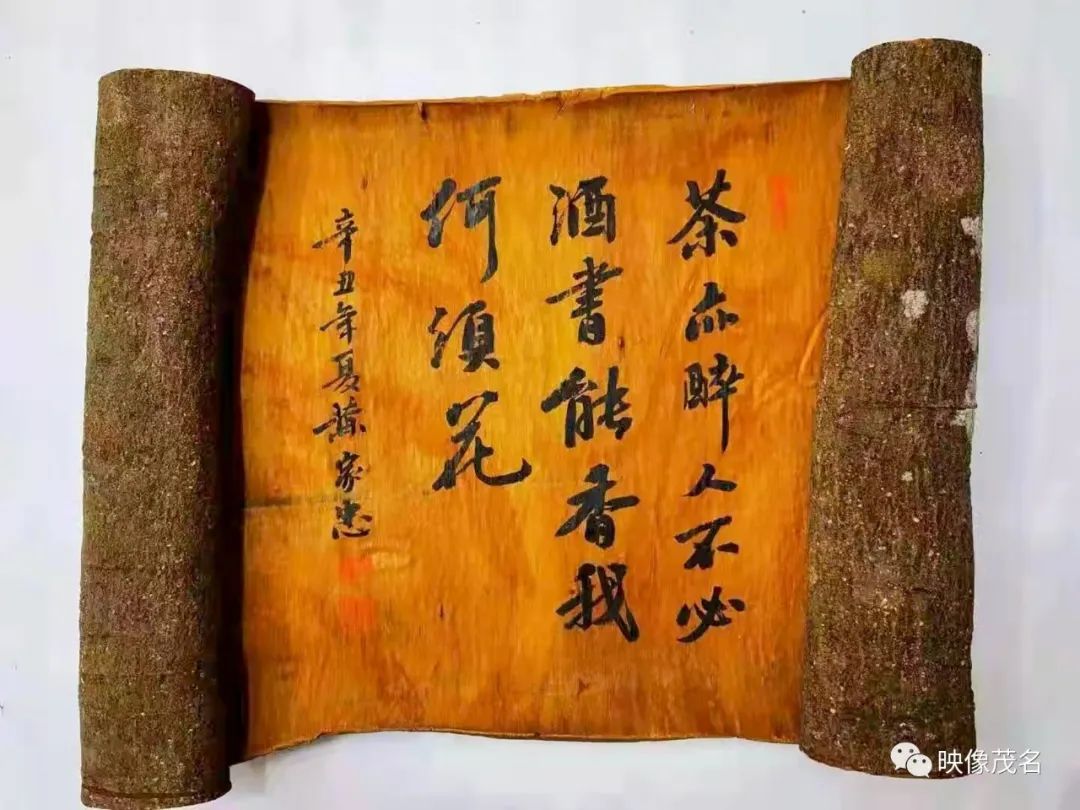 茶亦醉人不必
酒书能香我
何须花
辛丑年夏
家忠
映像茂名